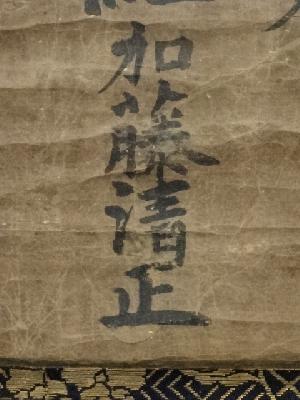 加藤清正